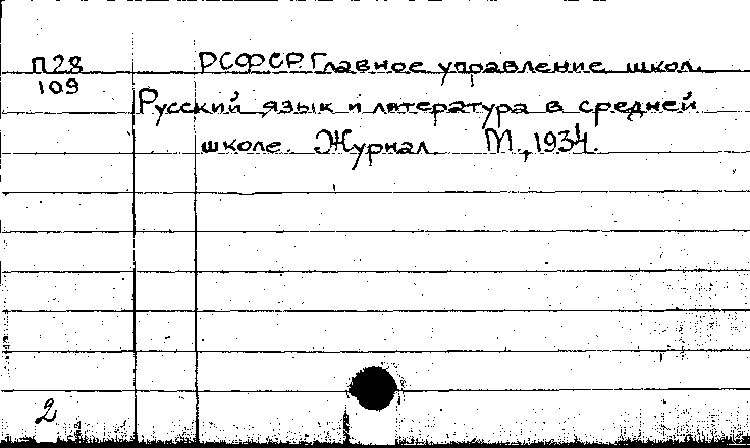 П28 РСФСР. Главное управление школ.
109
Русский язык и литература в средней
школе. Журнал. М., 1934.
2